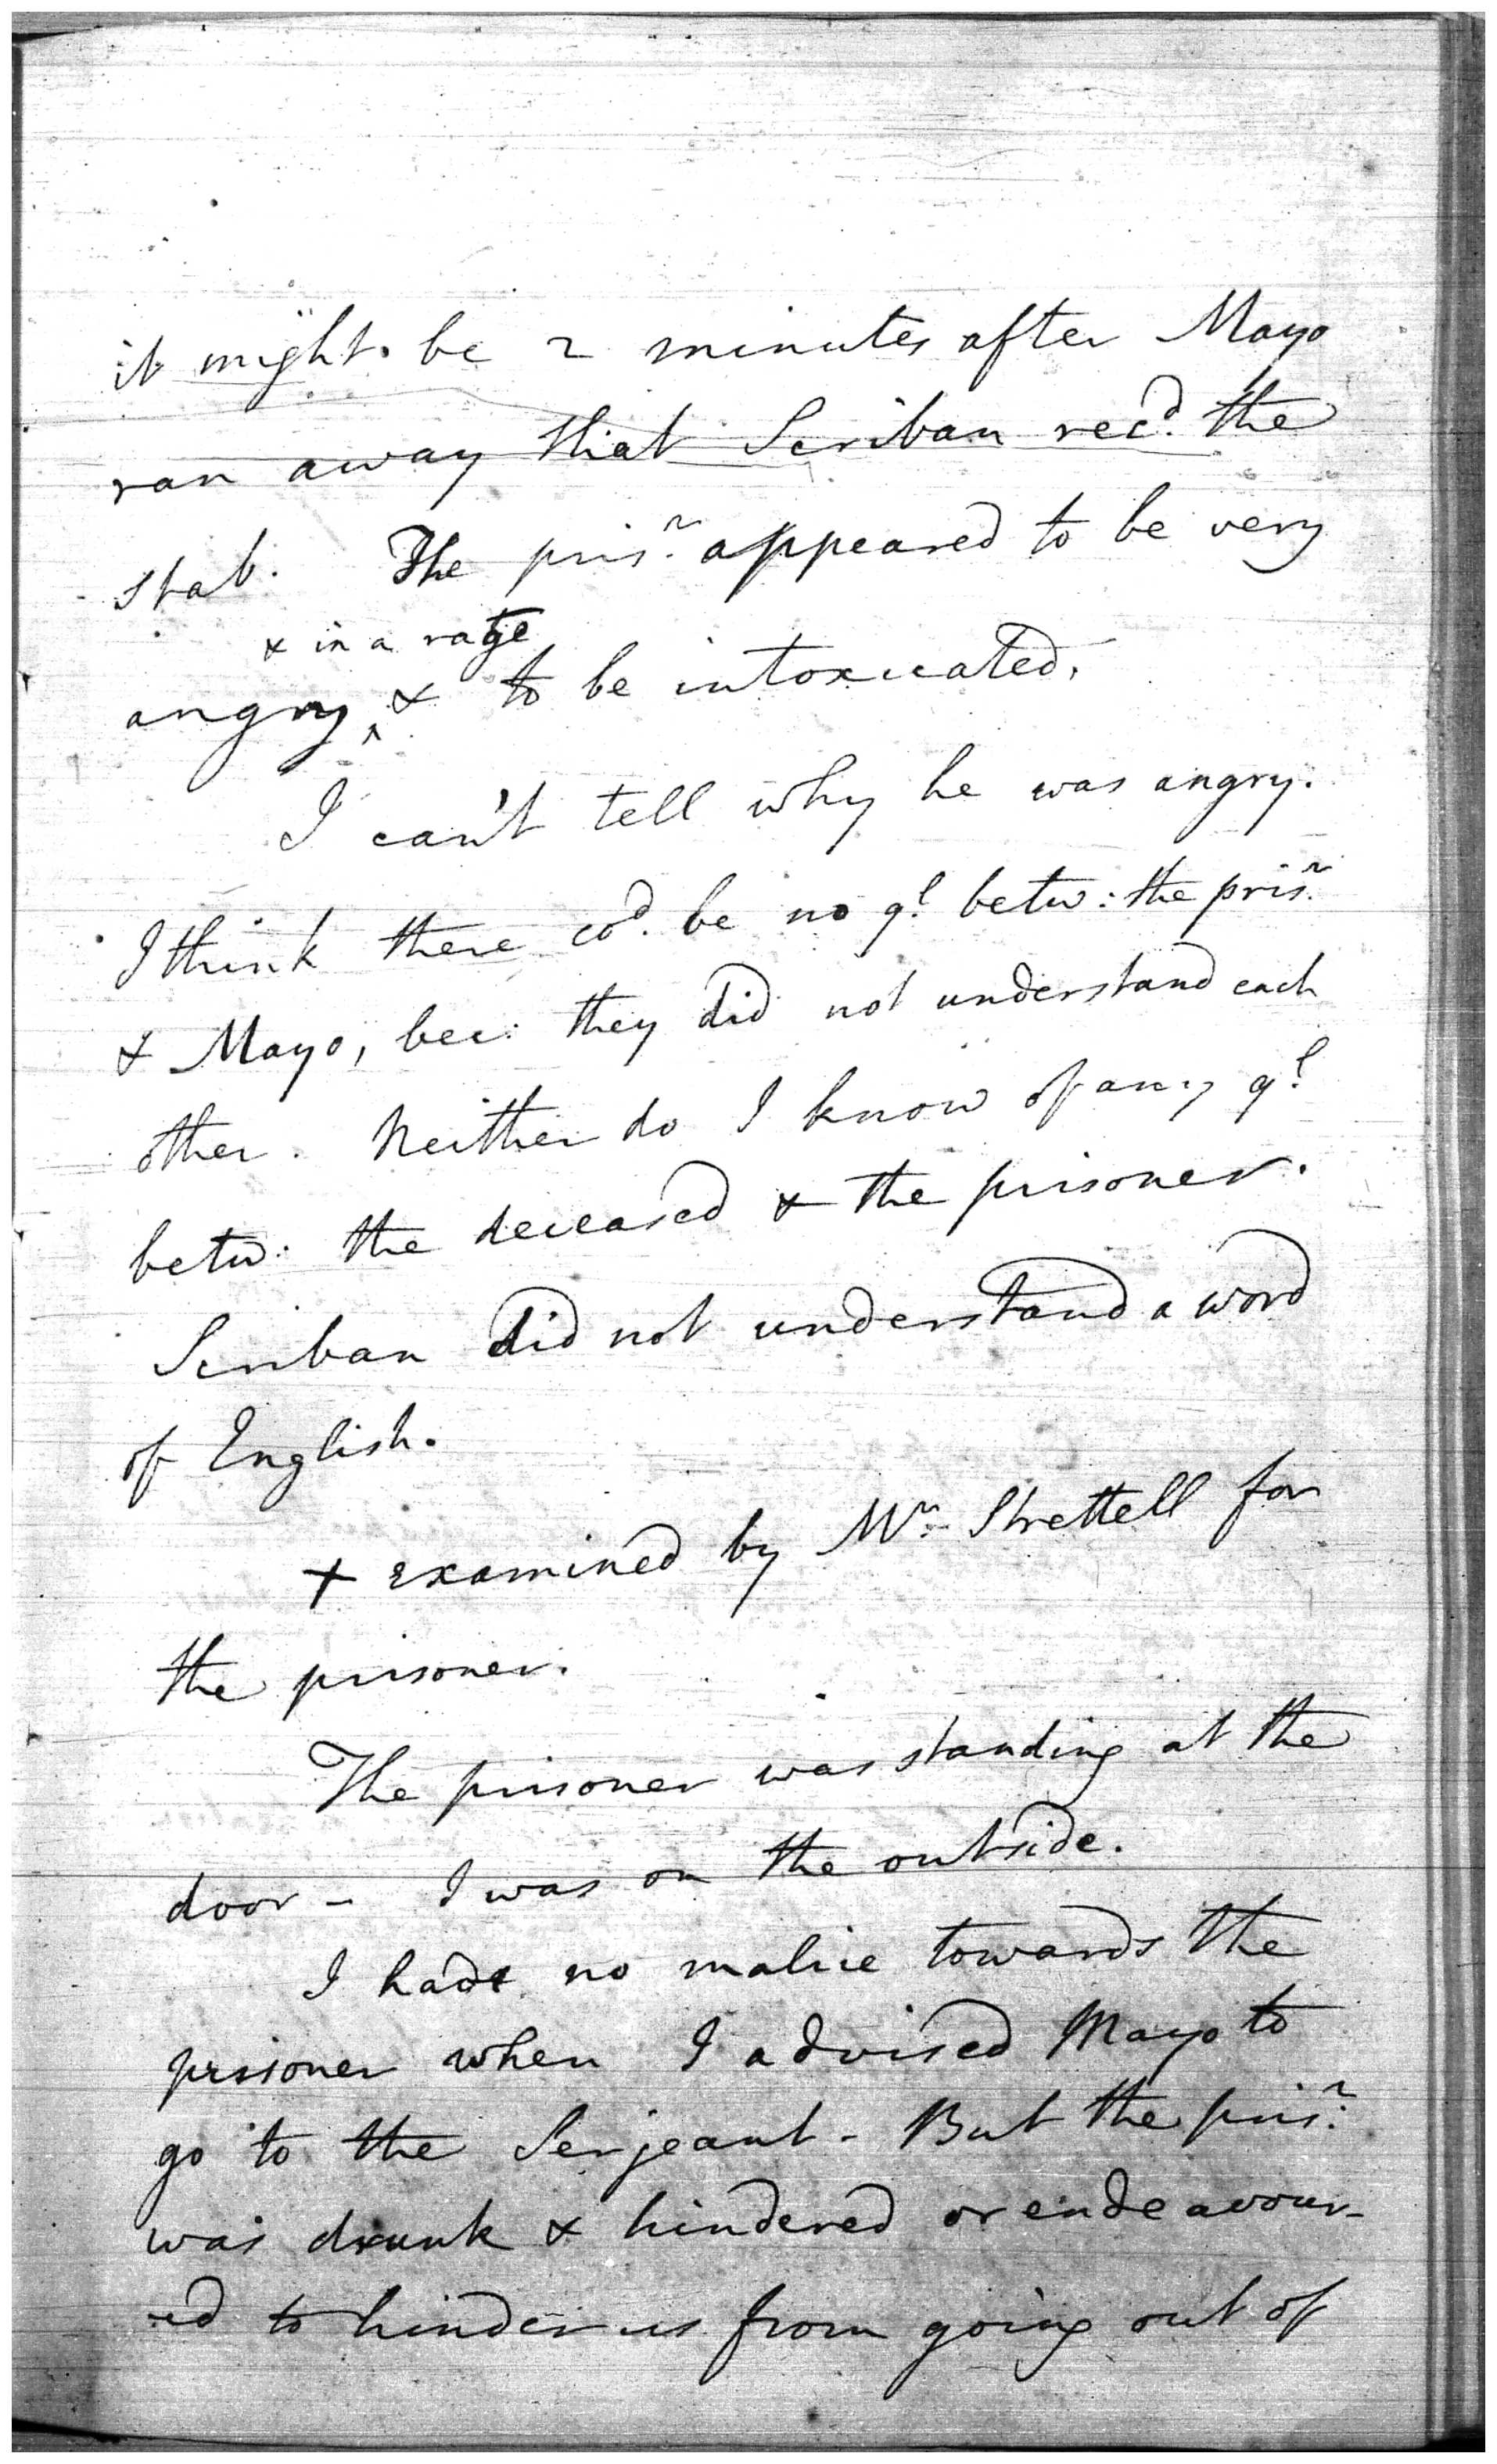 it might be 2 minutes after Mayo
ran away that Scriban rec^d. the
stab. The pris^r. appeared to be very
& in a rage
angry ^ & to be intoxicated.
I can't tell why he was angry.
I think there co^d. be no q^l. betw: the pris^r.
& Mayo, bec: they did not understand each
other. Neither do I know of any q^l.
betw: the deceased & the prisoner.
Scriban did not understand a word
of English.
+ examined by M^r. Strettell for
the prisoner.
The prisoner was standing at the
door - I was on the outside.
I had no malice towards the
prsioner when I advised Mayo to
go to the Serjeant - But the pris^r:
was drunk & hindered or endeavour-
ed to hinder us from going out of